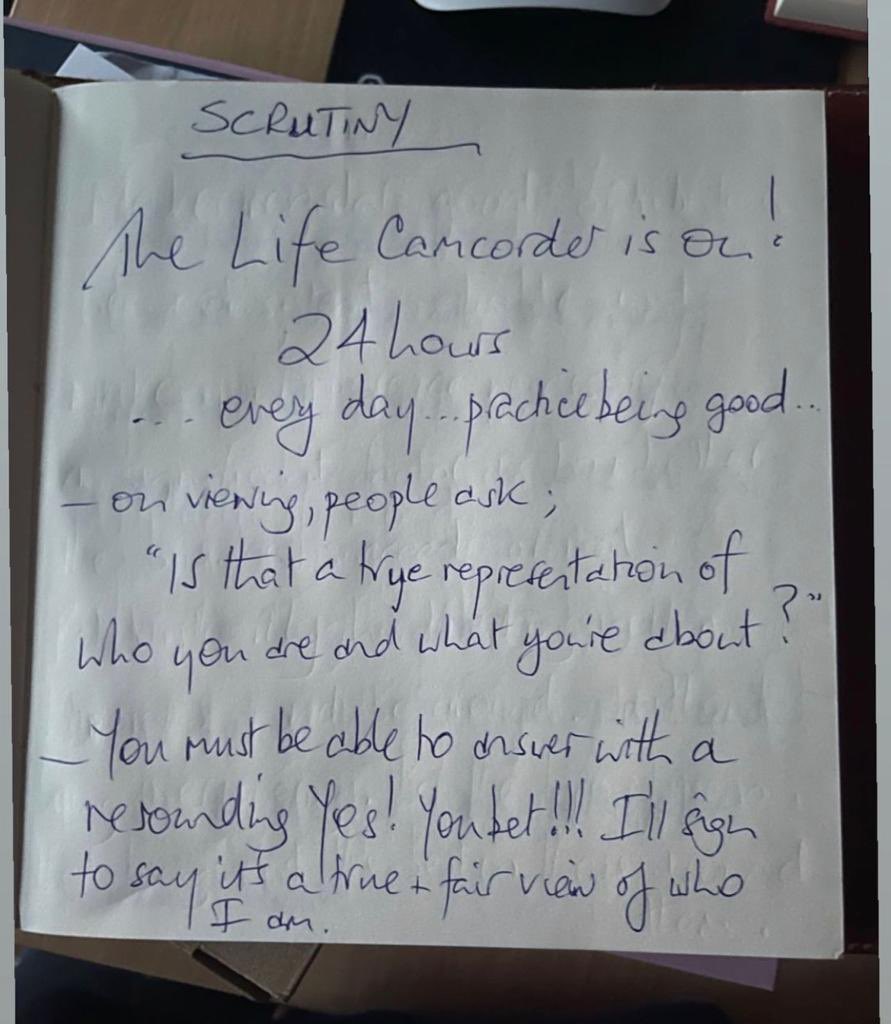 SCRUTINY
The Life Camcorder is on!
24 hours
.... every day... practice being good...
- on viewing, people ask;
"Is that a trye representation of
who you are and what you're about?"
- You must be able to answer with a
resounding Yes! You bet!!! I'll sign
to say it's a true + fair view of who
I am.